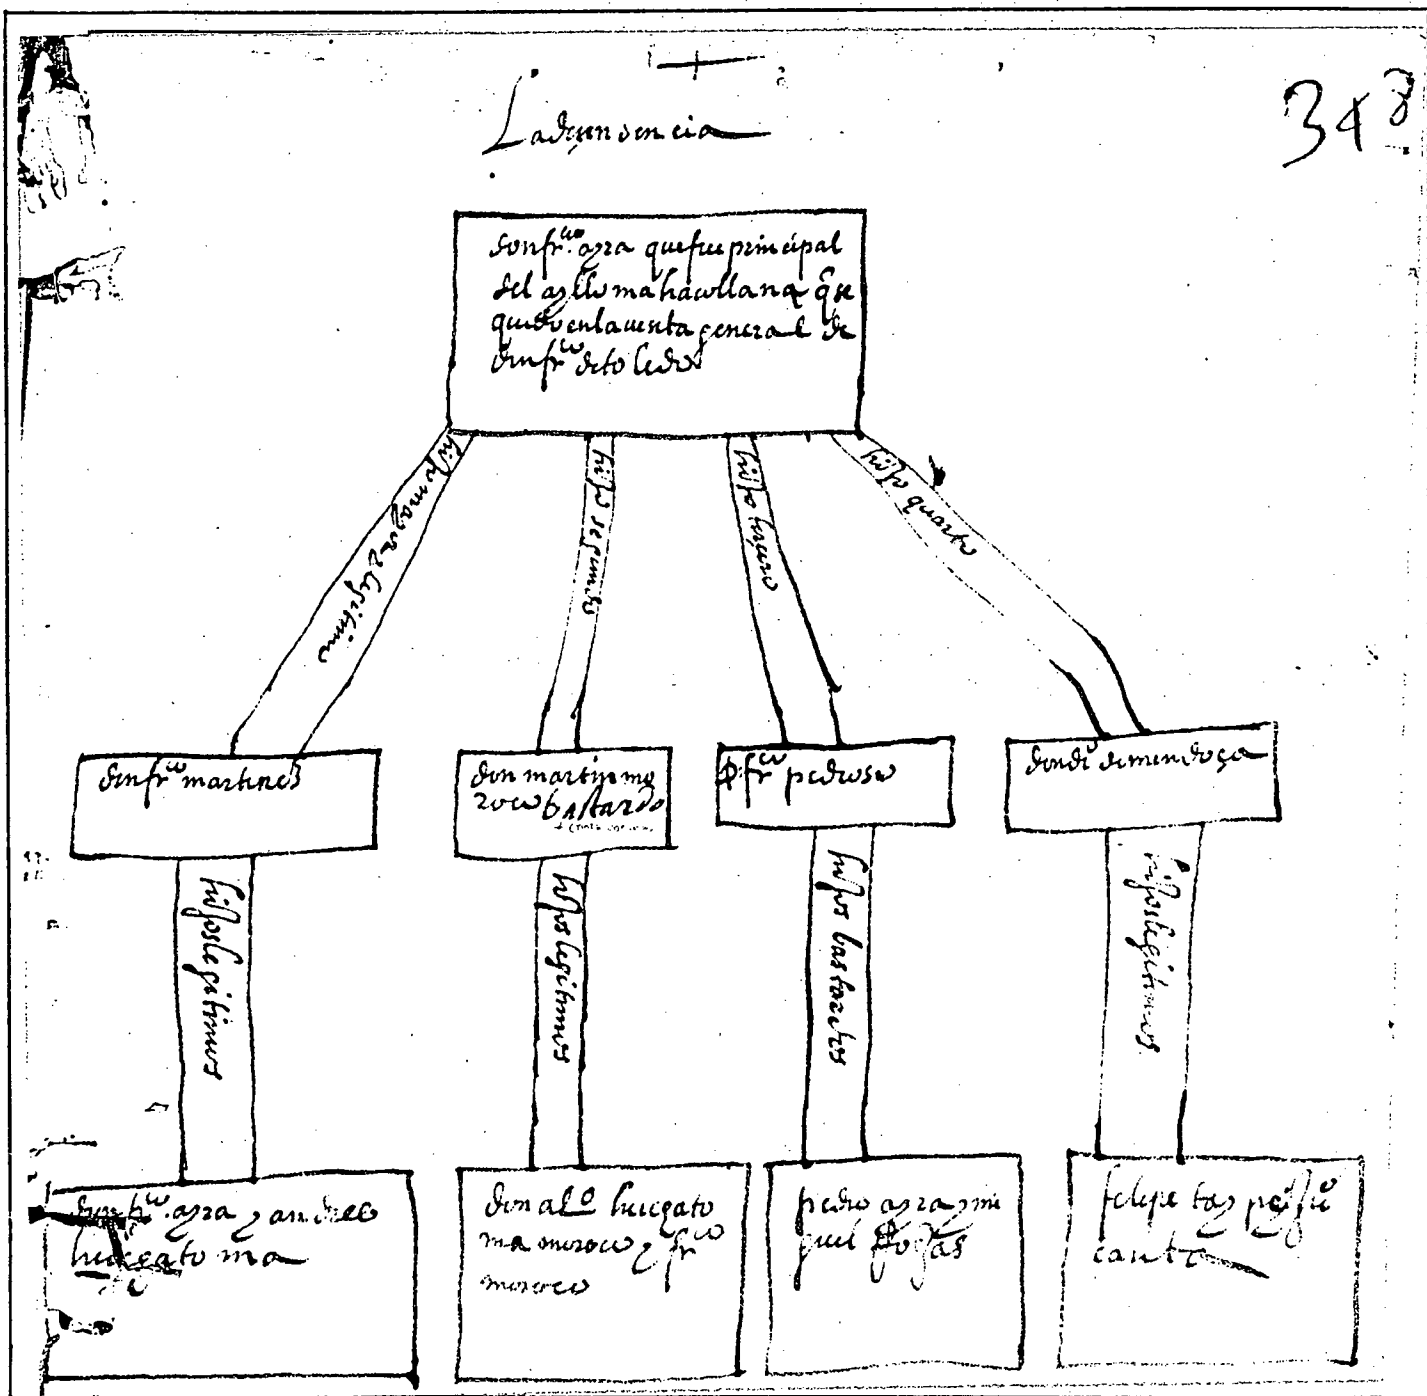 348
La decendencia
don fr.co ayra que fue principal
del ayllo mahacollana q se
quedo en la vesita general de
don fr.co de toledo
hijo mayor y legitimo
hijo segundo
hijo terçero
hijo quarto
don fr.co martines
don martin mo
roco bastardo
D. fr.co pedroso
don di.o de mendoça
hijos legitimos
hijos legitimos
hijos bastardos
hijos legitimos
don fr.co ayra y andres
huicgato ma
don al.o huicgato
ma moroco y fr.co
moroco
pedro ayra y mi
guel rojas
felipe
canta